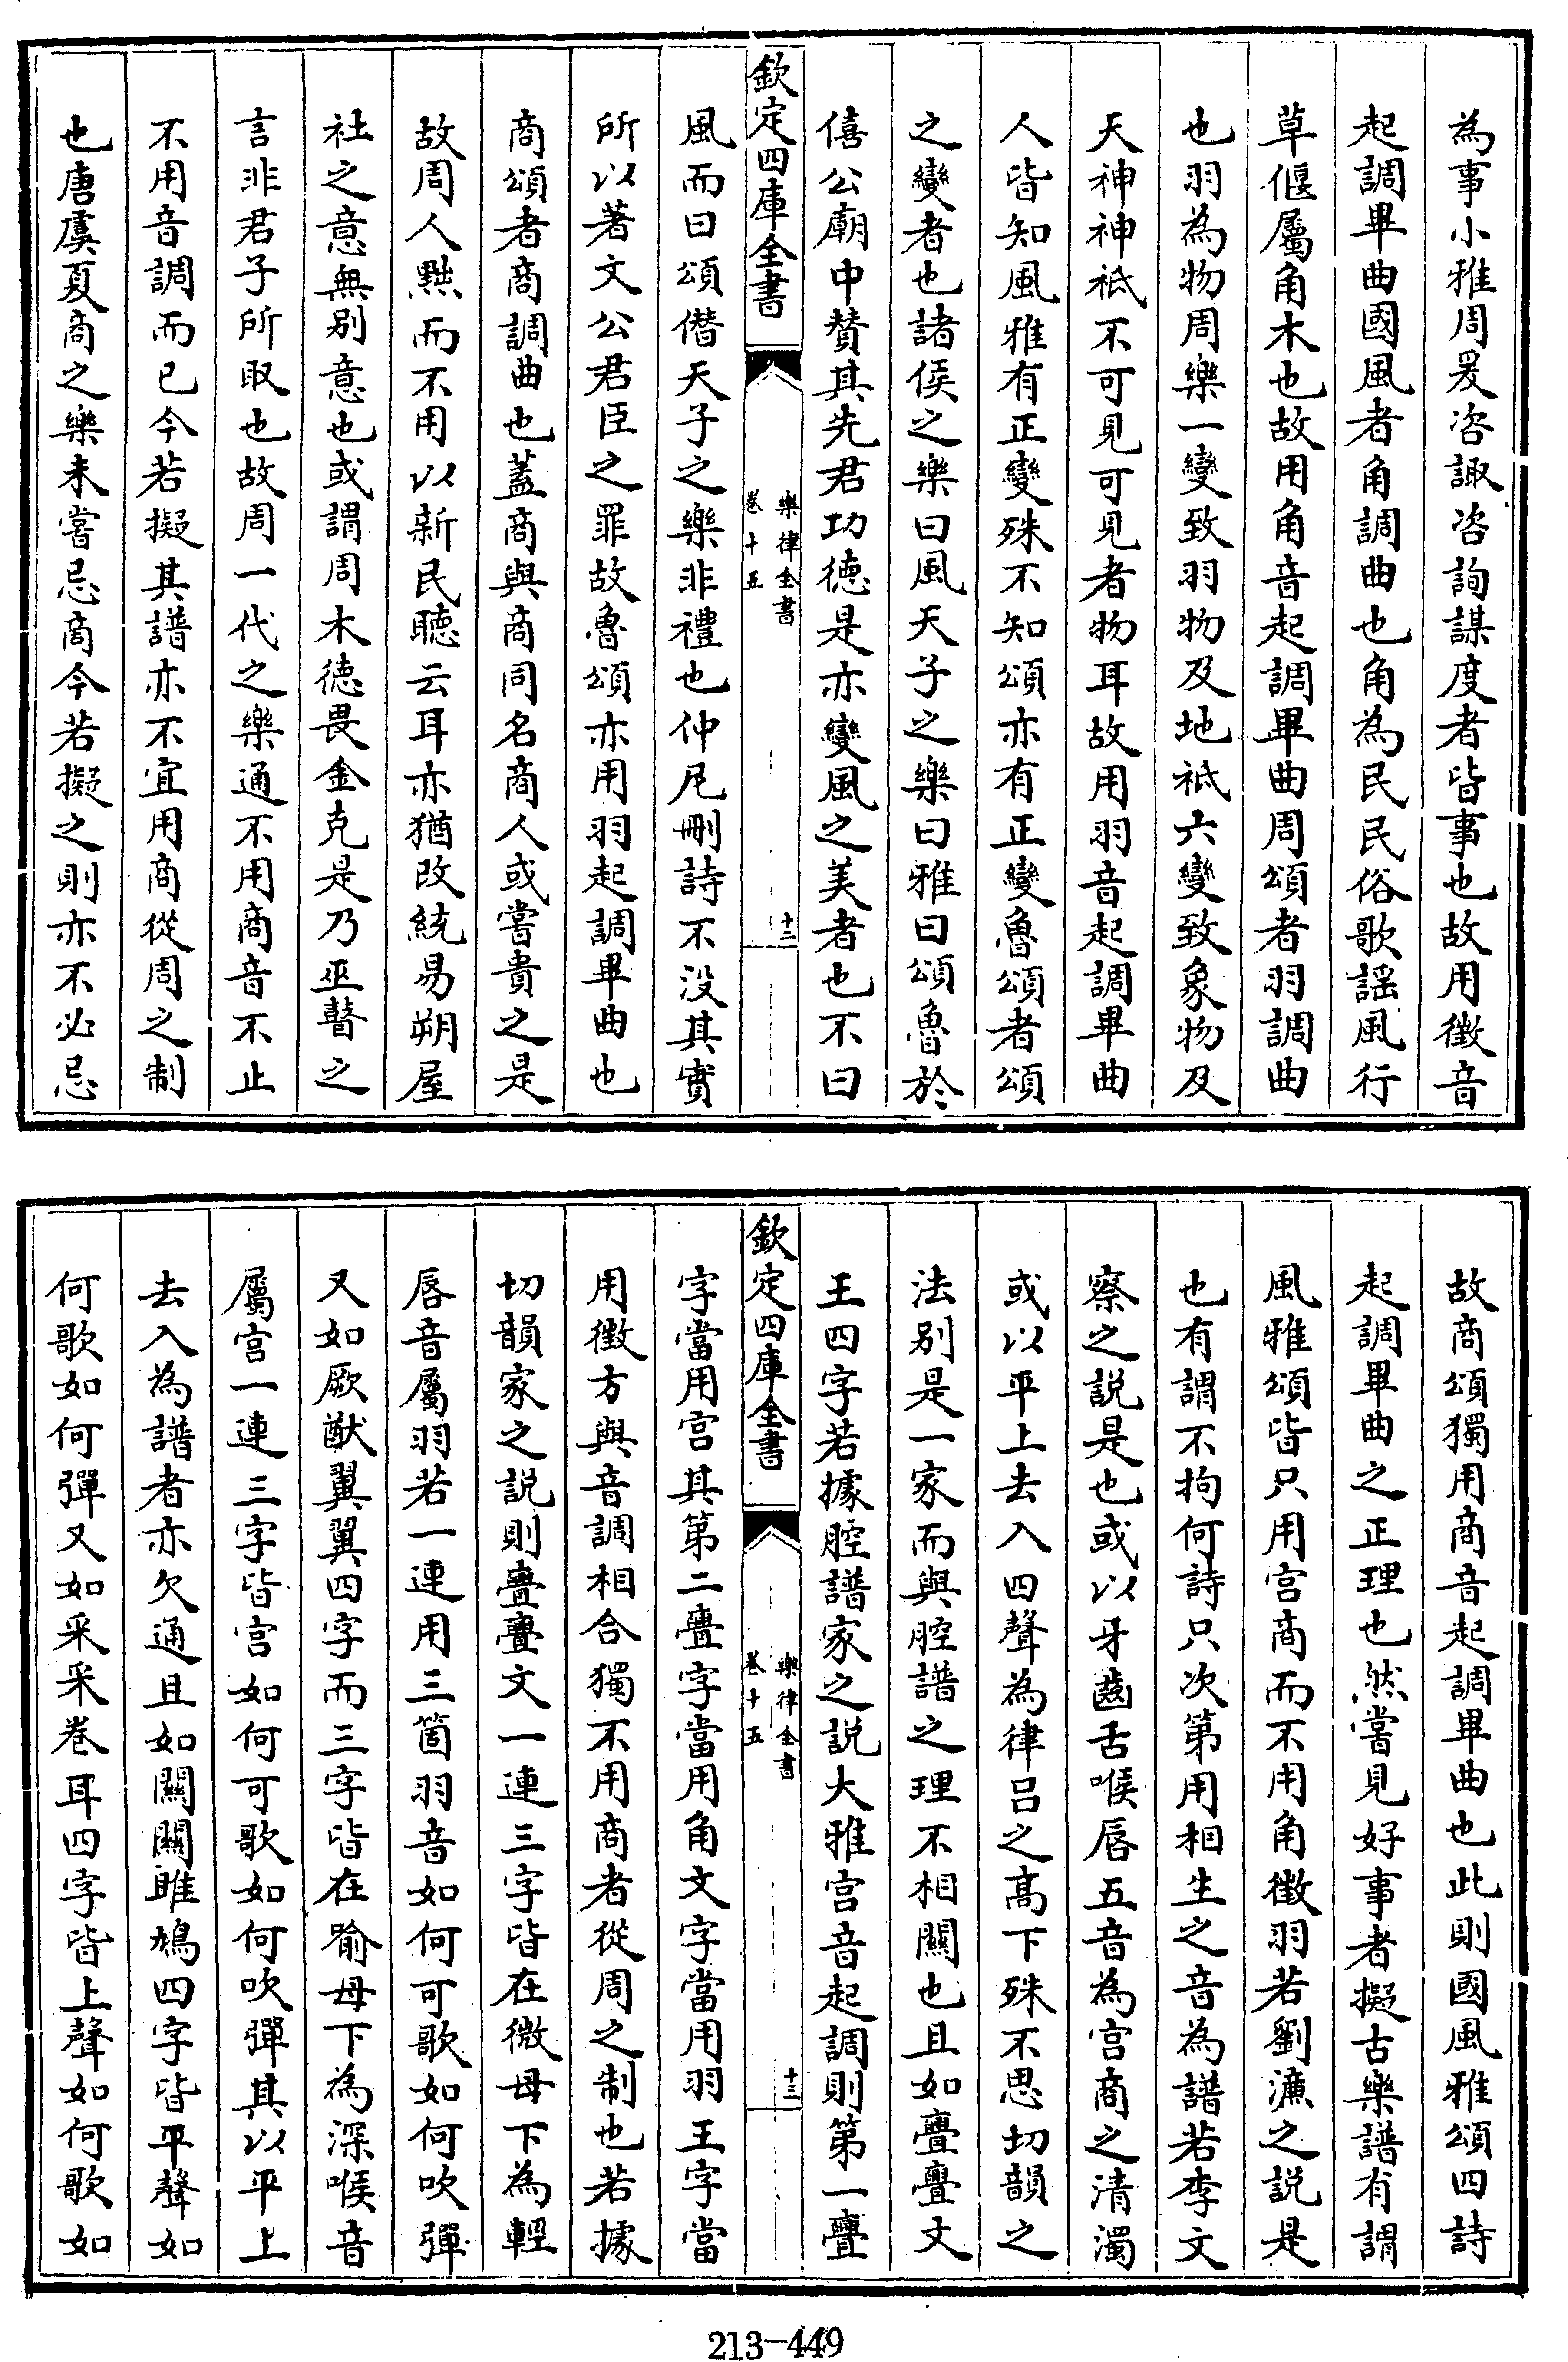 為事小雅周爰咨諏咨詢謀度者皆事也故用徵音
起調畢曲國風者角調曲也角為民民俗歌謡風行
草偃屬角木也故用角音起調畢曲周頌者羽調曲
也羽為物周樂一變致羽物及地祇六變致象物及
天神神祇不可見可見者物耳故用羽音起調畢曲
人皆知風雅有正變殊不知頌亦有正變魯頌者頌
之變者也諸侯之樂曰風天子之樂曰雅曰頌魯於
僖公廟中賛其先君功德是亦變風之美者也不曰
欽定四庫全書
樂律全書
卷十五
十二
風而曰頌僭天子之樂非禮也仲尼刪詩不没其實
所以著文公君臣之罪故魯頌亦用羽起調畢曲也
商頌者商調曲也蓋商與商同名商人或嘗貴之是
故周人黜而不用以新民聽云耳亦猶改統易朔屋
社之意無别意也或謂周木德畏金克是乃巫瞽之
言非君子所取也故周一代之樂通不用商音不止
不用音調而已今若擬其譜亦不宜用商從周之制
也唐虞夏商之樂未嘗忌商今若擬之則亦不必忌
故商頌獨用商音起調畢曲也此則國風雅頌四詩
起調畢曲之正理也然嘗見好事者擬古樂譜有謂
風雅頌皆只用宫商而不用角徵羽若劉濂之説是
也有謂不拘何詩只次第用相生之音為譜若李文
察之説是也或以牙齒舌喉唇五音為宫商之清濁
或以平上去入四聲為律吕之髙下殊不思切韻之
法别是一家而與腔譜之理不相關也且如亹亹文
王四字若據腔譜家之説大雅宫音起調則第一亹
欽定四庫全書
樂律全書
卷十五
十三
字當用宫其第二亹字當用角文字當用羽王字當
用徵方與音調相合獨不用商者從周之制也若據
切韻家之説則亹亹文一連三字皆在微母下為輕
唇音屬羽若一連用三箇羽音如何可歌如何吹彈
又如厥猷翼翼四字而三字皆在喻母下為深喉音
屬宫一連三字皆宫如何可歌如何吹彈其以平上
去入為譜者亦欠通且如關關雎鳩四字皆平聲如
何歌如何彈又如采采卷耳四字皆上聲如何歌如
213-449